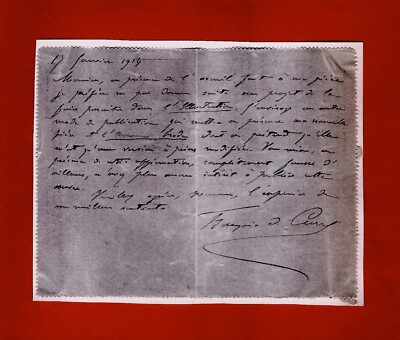 17 Janvier 1914
Monsieur, en présence de l'accueil fait à ma pièce
je préfère ne pas donner suite au projet de la
faire paraître dans l'Illustration. J'envisage un autre
mode de publication, qui mettra en présence ma nouvelle
pièce et l' dont on prétend qu'elle
n'est qu'une version à peine modifiée. Vous aurez, en
présence de cette affirmation, complètement fausse d'
ailleurs, a plus aucun intérêt à publier cette
Veuillez agréer, Monsieur, l'expression de
mes meilleurs sentiments
François de Curel